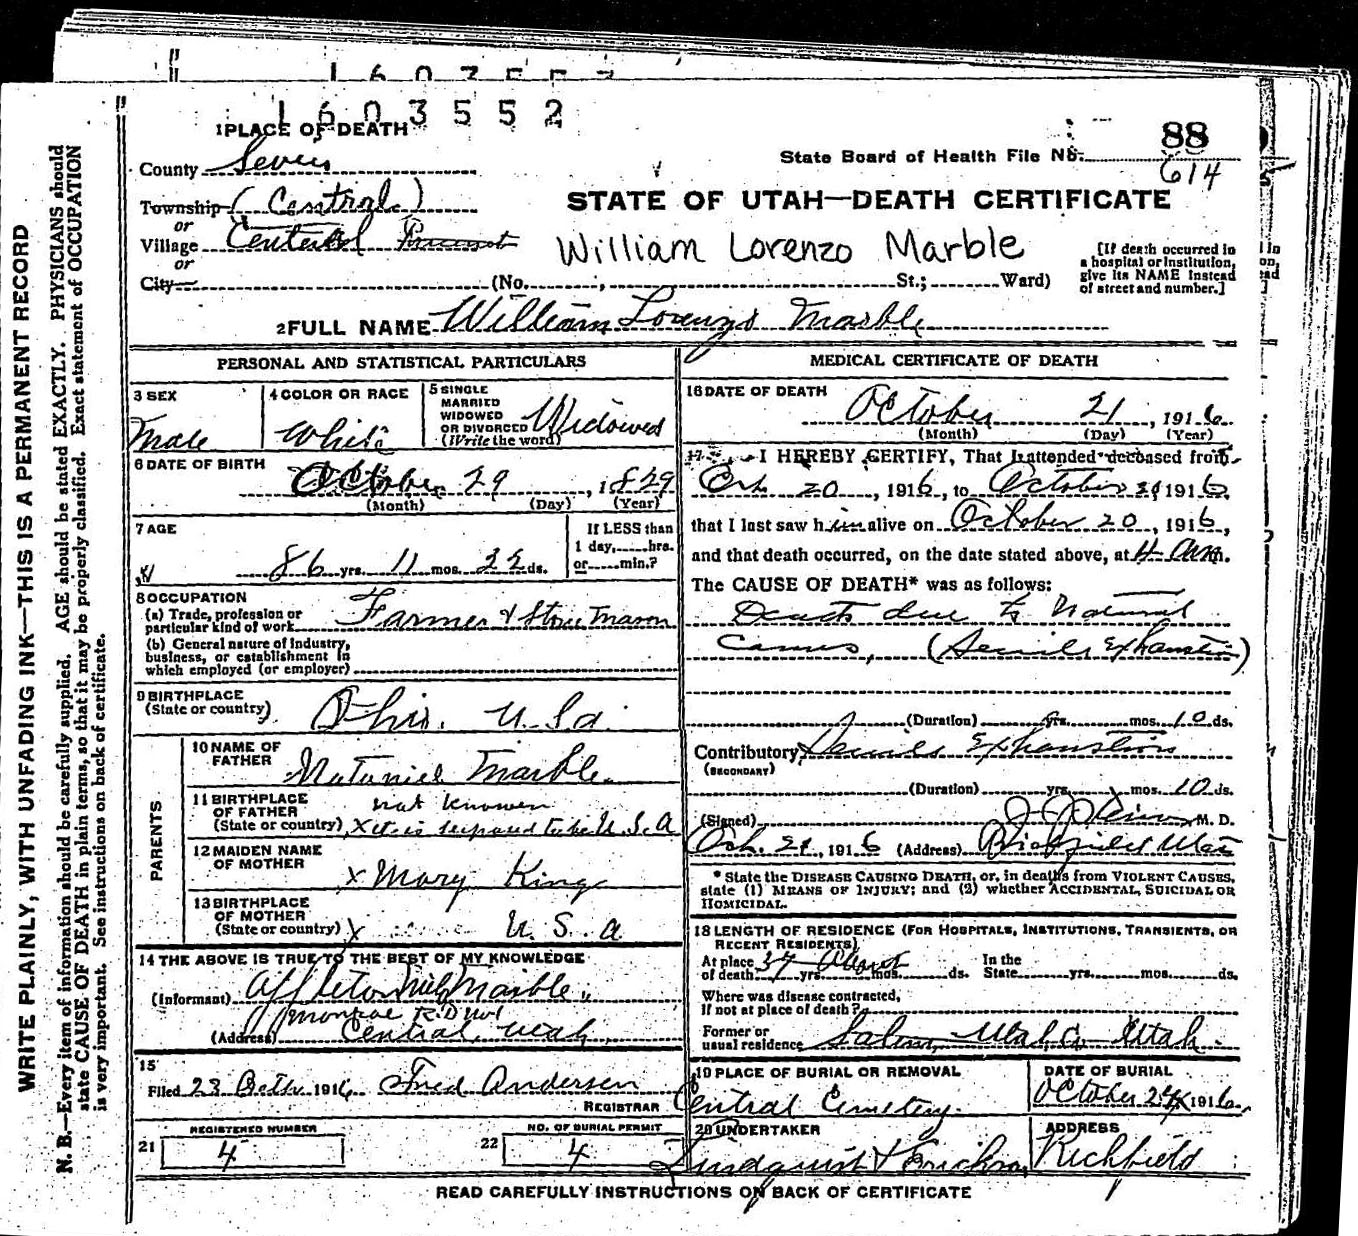 1603552
1 PLACE OF DEATH
County Sevier
Township (Central)
or
Village Central Precinct
or
City
88
State Board of Health File No.
614
STATE OF UTAH—DEATH CERTIFICATE
William Lorenzo Marble
[If death occurred in
a hospital or institution,
give its NAME instead
of street and number.]
(No. , St.; Ward)
2 FULL NAME William Lorenzo Marble
PERSONAL AND STATISTICAL PARTICULARS
3 SEX
Male
4 COLOR OR RACE
White
5 SINGLE
MARRIED
WIDOWED
OR DIVORCED
(Write the word)
Widowed
6 DATE OF BIRTH
October 29, 1829
(Month) (Day) (Year)
7 AGE
86 yrs. 11 mos. 22 ds.
If LESS than
1 day, hrs.
or min.?
8 OCCUPATION
(a) Trade, profession or
particular kind of work Farmer & Stone Mason
(b) General nature of industry,
business, or establishment in
which employed (or employer)
9 BIRTHPLACE
(State or country) Ohio. U.S.a.
PARENTS
10 NAME OF
FATHER Nataniel Marble.
11 BIRTHPLACE
OF FATHER
(State or country)
not known
X it is suposed to be U.S.A
12 MAIDEN NAME
OF MOTHER
x Mary King
13 BIRTHPLACE
OF MOTHER
(State or country) X U. S. a
14 THE ABOVE IS TRUE TO THE BEST OF MY KNOWLEDGE
(Informant) Appleton Marble.
Monroe R.D No 1
(Address) Central, Utah
15
Filed 23 1916 Fred Andersen
REGISTRAR
REGISTERED NUMBER
21 4
NO. OF BURIAL PERMIT
22 4
MEDICAL CERTIFICATE OF DEATH
16 DATE OF DEATH
October 21, 1916
(Month) (Day) (Year)
17 I HEREBY CERTIFY, That I attended deceased from
Oct. 20, 1916, to October 21 1916,
that I last saw him alive on October 20, 1916,
and that death occurred, on the date stated above, at 4 a.m.
The CAUSE OF DEATH* was as follows:
Death due to Natural
Causes, (Senile Exhaustion)
(Duration) yrs. mos. 10 ds.
Contributory Senile Exhaustion
(SECONDARY)
(Duration) yrs. mos. 10 ds.
(Signed) M. D.
Oct. 21, 1916 (Address) Richfield Utah
* State the DISEASE CAUSING DEATH, or, in deaths from VIOLENT CAUSES,
state (1) MEANS OF INJURY; and (2) whether ACCIDENTAL, SUICIDAL OR
HOMICIDAL.
18 LENGTH OF RESIDENCE (FOR HOSPITALS, INSTITUTIONS, TRANSIENTS, OR
RECENT RESIDENTS)
At place
of death 37 yrs. About mos. ds.
In the
State yrs. mos. ds.
Where was disease contracted,
if not at place of death?
Former or
usual residence Salem, Utah Co Utah.
19 PLACE OF BURIAL OR REMOVAL
Central Cemetery.
DATE OF BURIAL
October 24 1916
20 UNDERTAKER
ADDRESS
Richfield
READ CAREFULLY INSTRUCTIONS ON BACK OF CERTIFICATE
WRITE PLAINLY, WITH UNFADING INK—THIS IS A PERMANENT RECORD
N. B.—Every item of information should be carefully supplied. AGE should be stated EXACTLY. PHYSICIANS should
state CAUSE OF DEATH in plain terms, so that it may be properly classified. Exact statement of OCCUPATION
is very important. See instructions on back of certificate.